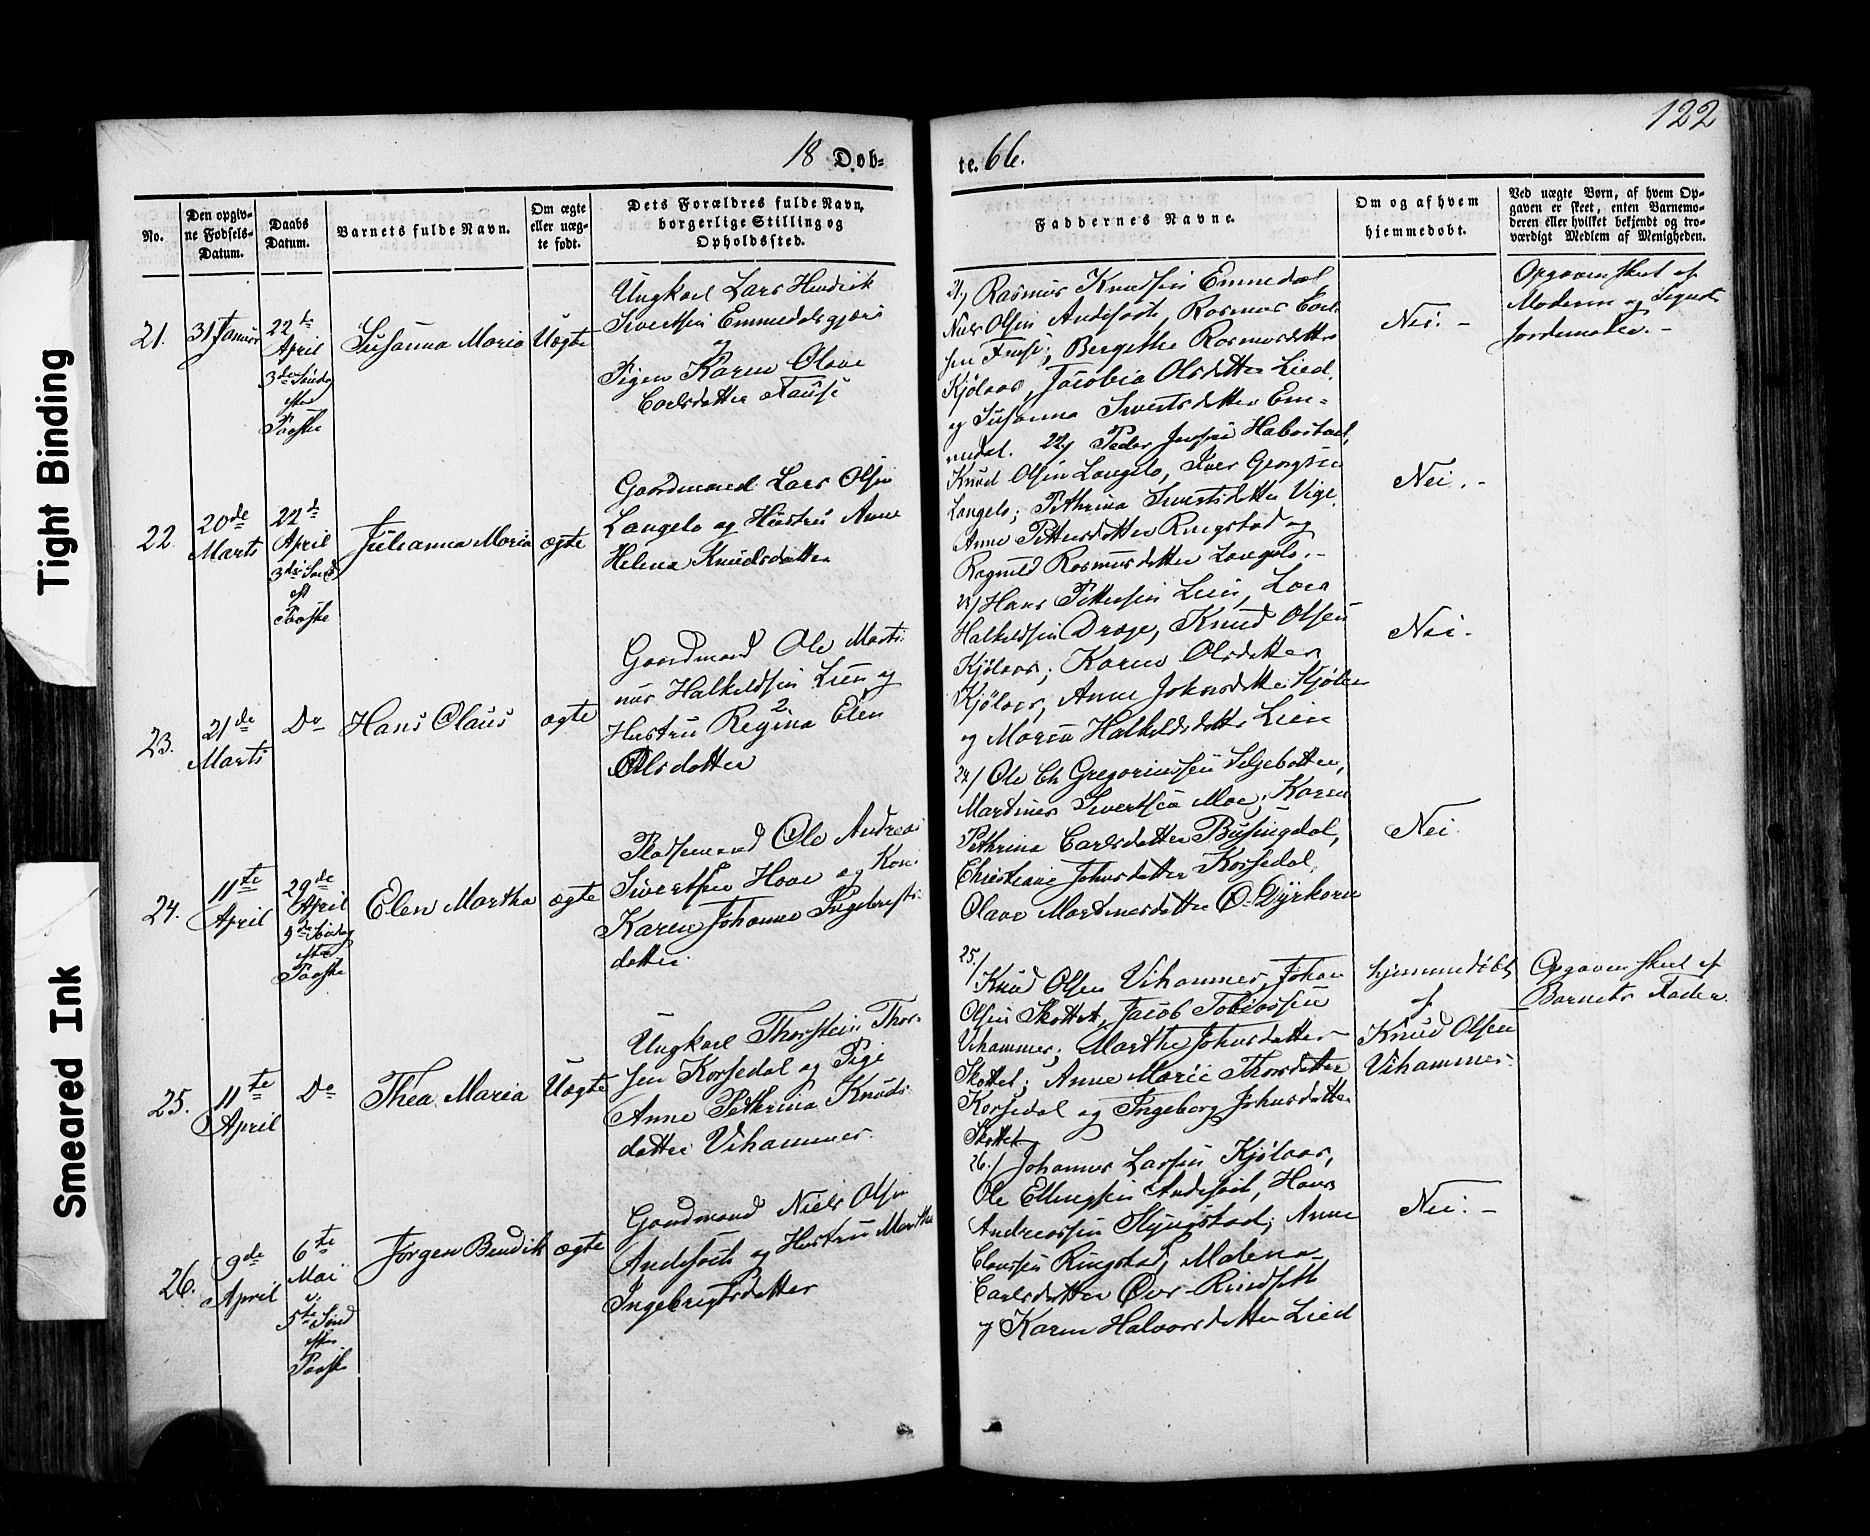 Tight Binding
Smeared Ink
122
18 Døb-
te. 66.
No.
Den opgiv-
ne Fødsels-
Datum.
Daabs
Datum.
Barnets fulde Navn.
Om ægte
eller uæg-
te født.
Dets Forældres fulde Navn,
borgerlige Stilling og
Opholdssted.
Faddernes Navne.
Om og af hvem
hjemmedøbt.
Ved uægte Børn, af hvem Op-
gaven er skeet, enten Barnemo-
deren eller hvilket bekjendt og tro-
værdigt Medlem af Menigheden.
21.
31 Januar
22de
April
3die Sønd
efter
Paaske
Susanna Maria
Uægte
Ungkarl Lars Hendrik
Sivertsen Emmedalsgjære
og
Pigen Karen Olave
Carlsdatter Fause
21) Rasmus Knudsen Emmedal
Niels Olsen Andesøch, Rasmus Carl-
sen Fause; Bergithe Rasmusdatter
Kjølaas, Jacobia Olsdatter Lied,
og Susanna Sivertsdatter Em-
medal.
Nei. -
Opgaven skeet af
Moderen og
Jordemoder. -
22.
20de
Marts
22de
April
3die Sønd
eft
Paaske
Julianna Maria
ægte
Gaardmand Lars Olsen
Langelo og Hustru Anne
Helena Knudsdatter
22) Peder Jensen Habostad,
Knud Olsen Langelo, Iver Georgsen
Langelo; Pethrina Sivertsdatter Vige,
Anne Pettersdatter Ringstad og
Ragnild Rasmusdatter Langelo. -
Nei. -
23.
21de
Marts
Do
Hans Olaus
ægte
Gaardmand Ole Marti-
nus Halkeldsen Lien og
Hustru Regina 2 Elen
Olsdatter
23/ Hans Pettersen Lien, Lars
Halkeldsen Drage, Knud Olsen
Kjølaas; Karen Olsdatter
Kjølaas, Anne Johnsdatter Kjølaas
og Maria Halkeldsdatter Lien
Nei -
24.
11te
April
29de
April
4de Søndag
efter
Paaske
Elen Martha
ægte
Pladsemand Ole Andreas
Sivertsen Hove og Kone
Karen Johanne Ingebrigts-
datter
24/ Ole Ch Gregoriussen Seljebotten,
Martinus Sivertsen Moe; Karen
Pethrina Carlsdatter Busingdal,
Christiane Johnsdatter Korsedal,
Olave Martinusdatter Ø-Dyrkorn
Nei.
25.
11te
April
Do
Thea Maria
Uægte
Ungkarl Thorstein Thor-
sen Korsedal og Pige
Anne Pethrina Knuds-
datter Vihammer.
25/
Knud Olsen Vihammer, Johan
Olsen Skottet, Jacob Tobiassen
Vihammer; Marthe Johnsdatter
Skottet; Anne Marie Thorsdatter
Korsedal og Ingeborg Johnsdatter
Skottet
hjemmedøbt
af
Knud Olsen
Vihammer.
Opgaven skeet af
Barnets Fader.
26.
9de
April
6te
Mai
5te Sønd
efter
Paaske
Jørgen Bendik
ægte
Gaardmand Niels Olsen
Andesøch og Hustru Marthe
Ingebrigtsdatter
26./ Johannes Larsen Kjølaas,
Ole Ellingsen Andesøch, Hans
Andreassen Slyngstad; Anne
Claussen Ringstad, Malena
Carlsdatter Øvr-Rindseth
og Karen Halvorsdatter Lied
Nei. -